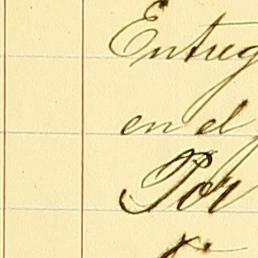 Entreg
en el
Por